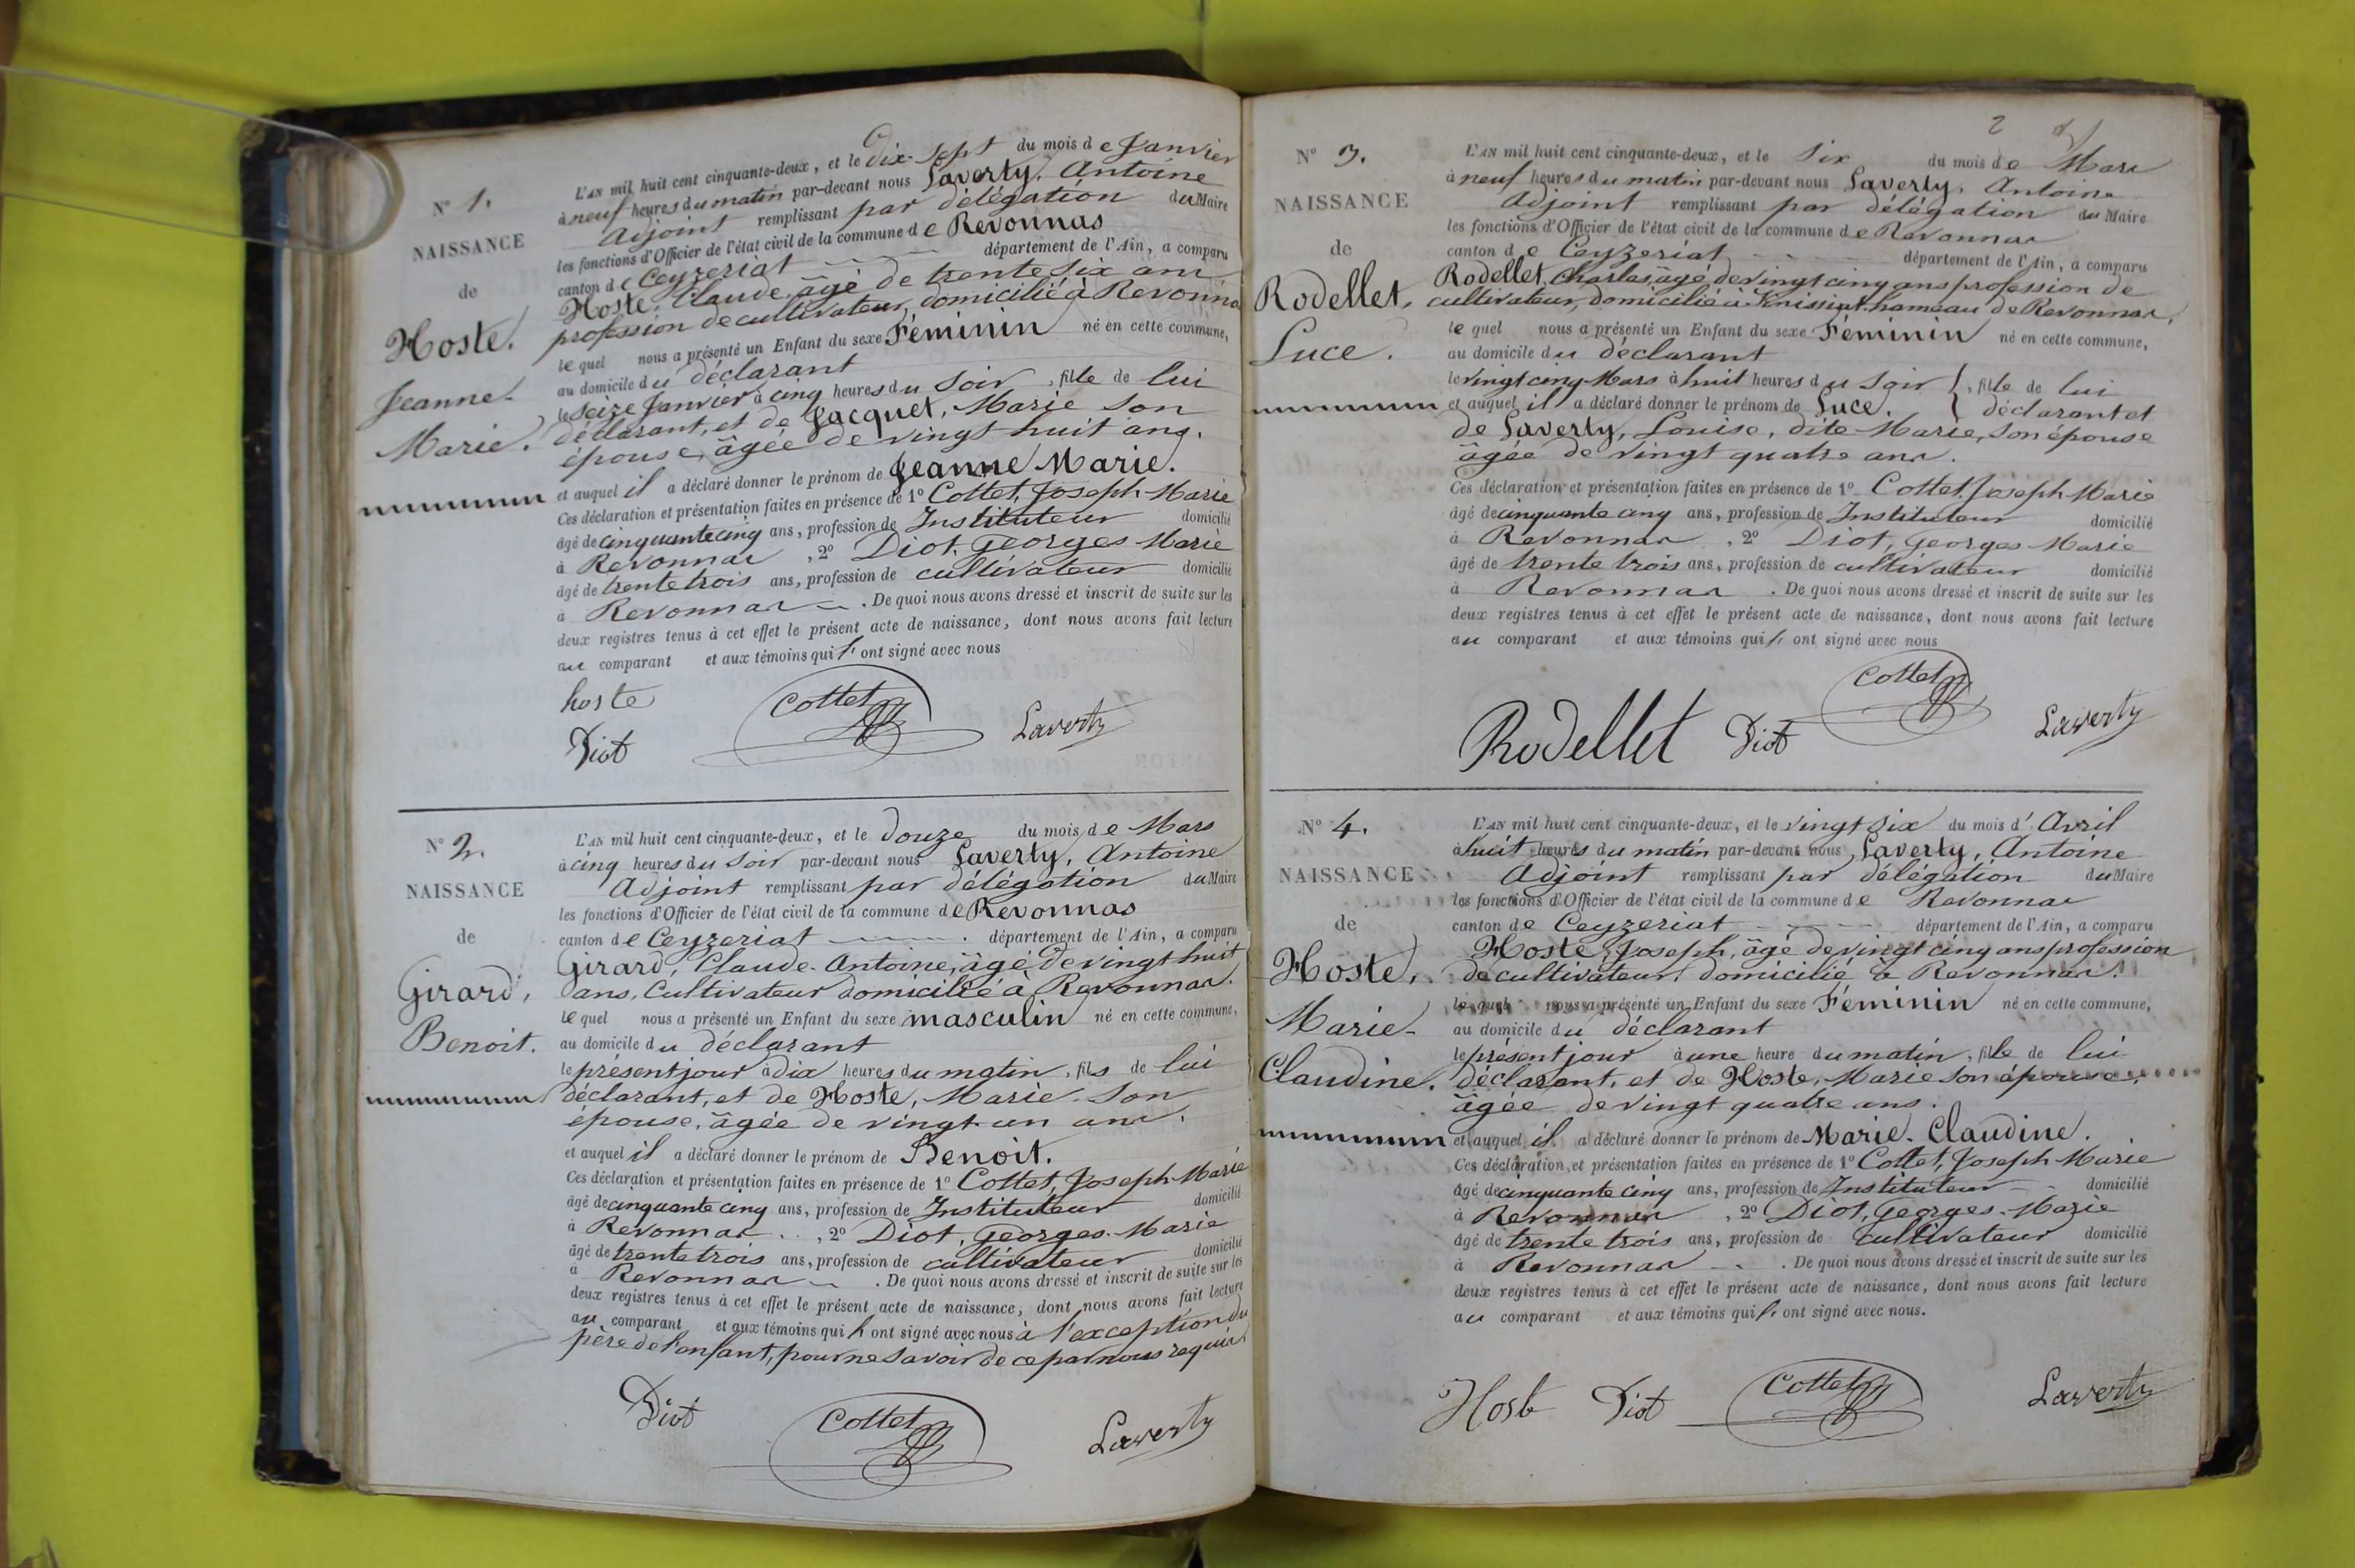 N° 1.
NAISSANCE
de
Hoste.
Jeanne-
Marie.
L'AN mil huit cent cinquante-deux, et le Dix-sept du mois de Janvier
à neuf heures du matin par-devant nous Laverty, Antoine
Adjoint remplissant par délégation du Maire
les fonctions d'Officier de l'état civil de la commune de Revonnas
canton de Ceyzeriat département de l'Ain, a comparu
Hoste, Claude, âgé de trente six ans
profession de cultivateur, domicilié à Revonnas
lequel nous a présenté un Enfant du sexe Féminin né en cette commune,
au domicile du déclarant
le seize Janvier à cinq heures du Soir, fille de lui
déclarant, et de Jacquet, Marie son
épouse, âgée de vingt huit ans.
et auquel il a déclaré donner le prénom de Jeanne Marie.
Ces déclaration et présentation faites en présence de 1° Cottet, Joseph-Marie
âgé de cinquante cinq ans, profession de Instituteur domicilié
à Revonnas, 2° Diot, Georges Marie
âgé de trente trois ans, profession de cultivateur domicilié
à Revonnas. De quoi nous avons dressé et inscrit de suite sur les
deux registres tenus à cet effet le présent acte de naissance, dont nous avons fait lecture
au comparant et aux témoins qui l' ont signé avec nous
hoste
Cottet
Laverty
Diot
N° 2.
NAISSANCE
de
Girard,
Benoit.
L'AN mil huit cent cinquante-deux, et le Douze du mois de Mars
à cinq heures du Soir par-devant nous Laverty, Antoine
Adjoint remplissant par délégation du Maire
les fonctions d'Officier de l'état civil de la commune de Revonnas
canton de Ceyzeriat. département de l'Ain, a comparu
Girard, Claude-Antoine, âgé de vingt huit
ans, Cultivateur domicilié à Revonnas.
lequel nous a présenté un Enfant du sexe masculin né en cette commune,
au domicile du déclarant
le présent jour à dix heures du matin, fils de lui
déclarant, et de Hoste, Marie. Son
épouse, âgée de vingt-un ans.
et auquel il a déclaré donner le prénom de Benoit.
Ces déclaration et présentation faites en présence de 1° Cottet, Joseph-Marie
âgé de cinquante cinq ans, profession de Instituteur domicilié
à Revonnas, 2° Diot, Georges-Marie
âgé de trente trois ans, profession de cultivateur domicilié
à Revonnas. De quoi nous avons dressé et inscrit de suite sur les
deux registres tenus à cet effet le présent acte de naissance, dont nous avons fait lecture
au comparant et aux témoins qui l' ont signé avec nous à l'exception du
père de l'enfant, pour ne savoir de ce par nous requis
Diot
Cottet
Laverty
2
N° 3.
NAISSANCE
de
Rodellet,
Luce.
L'AN mil huit cent cinquante-deux, et le Six du mois de Mars
à neuf heures du matin par-devant nous Laverty, Antoine
Adjoint remplissant par délégation du Maire
les fonctions d'Officier de l'état civil de la commune de Revonnas
canton de Ceyzeriat département de l'Ain, a comparu
Rodellet, Charles, âgé de vingt cinq ans profession de
cultivateur, domicilié à hameau de Revonnas,
lequel nous a présenté un Enfant du sexe Féminin né en cette commune,
au domicile du déclarant
le vingt cinq Mars à huit heures du Soir, fille de lui
et auquel il a déclaré donner le prénom de Luce. déclarant et
de Laverty, Louise, dite Marie, son épouse
âgée de vingt quatre ans.
Ces déclaration et présentation faites en présence de 1° Cottet, Joseph-Marie
âgé de cinquante cinq ans, profession de Instituteur domicilié
à Revonnas, 2° Diot, Georges-Marie
âgé de trente trois ans, profession de cultivateur domicilié
à Revonnas. De quoi nous avons dressé et inscrit de suite sur les
deux registres tenus à cet effet le présent acte de naissance, dont nous avons fait lecture
au comparant et aux témoins qui l' ont signé avec nous
Cottet
Rodellet Diot Laverty
N° 4.
NAISSANCE
de
Hoste,
Marie-
Claudine.
L'AN mil huit cent cinquante-deux, et le vingt six du mois d'Avril
à huit heures du matin par-devant nous Laverty, Antoine
Adjoint remplissant par délégation du Maire
les fonctions d'Officier de l'état civil de la commune de Revonnas
canton de Ceyzeriat département de l'Ain, a comparu
Hoste, Joseph, âgé de vingt cinq ans profession
de cultivateur, domicilié à Revonnas.
lequel nous a présenté un Enfant du sexe Féminin né en cette commune,
au domicile du déclarant
le présent jour à une heure du matin, fille de lui
déclarant, et de Hoste, Marie son épouse,
âgée de vingt quatre ans.
et auquel il a déclaré donner le prénom de Marie-Claudine.
Ces déclaration et présentation faites en présence de 1° Cottet, Joseph-Marie
âgé de cinquante cinq ans, profession de Instituteur domicilié
à Revonnas, 2° Diot, Georges-Marie
âgé de trente trois ans, profession de cultivateur domicilié
à Revonnas. De quoi nous avons dressé et inscrit de suite sur les
deux registres tenus à cet effet le présent acte de naissance, dont nous avons fait lecture
au comparant et aux témoins qui l' ont signé avec nous.
Hoste Diot Cottet Laverty